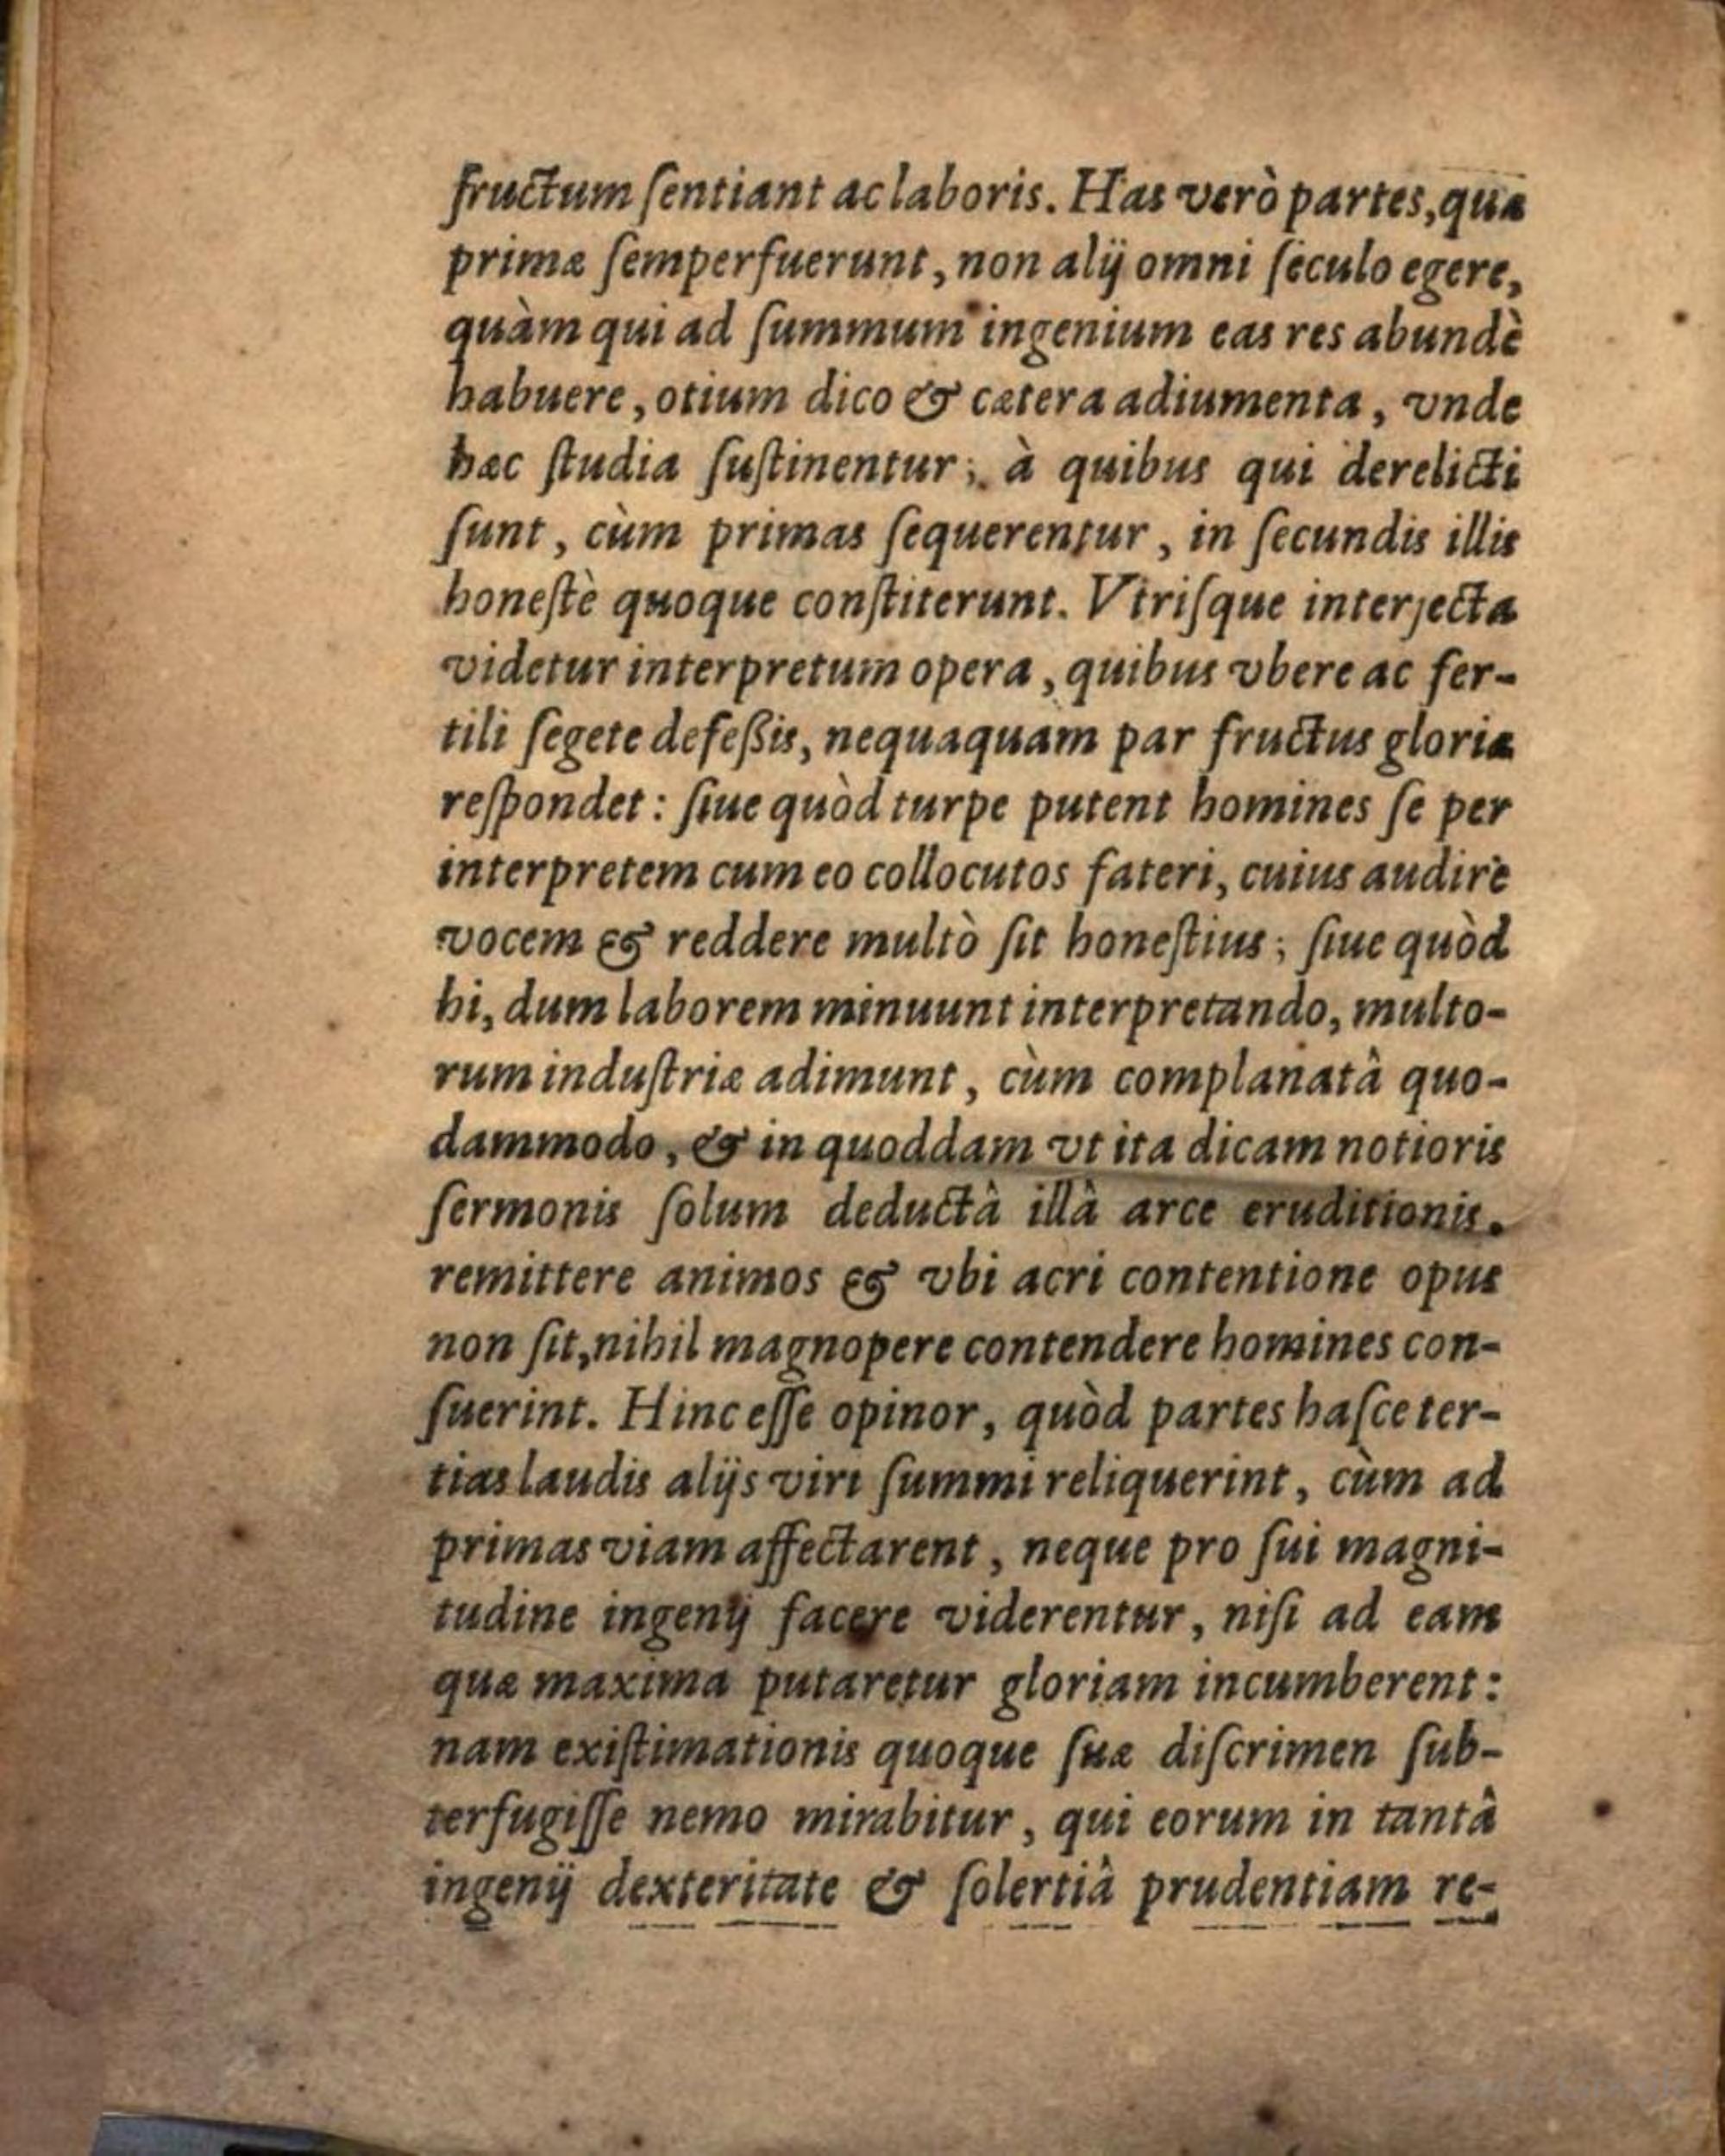 fructum ſentiant ac laboris. Has verò partes, quæ
primæ ſemper fuerunt, non alij omni ſeculo egere,
quàm qui ad ſummum ingenium eas res abundè
habuere, otium dico & cætera adiumenta, vnde
hæc ſtudia ſuſtinentur; à quibus qui derelicti
ſunt, cùm primas ſequerentur, in ſecundis illis
honeſtè quoque conſtiterunt. Vtriſque interjecta
videtur interpretum opera, quibus vbere ac fer-
tili ſegete defeßis, nequaquam par fructus gloriæ
reſpondet: ſiue quòd turpe putent homines ſe per
interpretem cum eo collocutos fateri, cuius audire
vocem & reddere multò ſit honeſtius; ſiue quòd
hi, dum laborem minuunt interpretando, multo-
rum induſtriæ adimunt, cùm complanatâ quo-
dammodo, & in quoddam vt ita dicam notioris
ſermonis ſolum deductâ illâ arce eruditionis.
remittere animos & vbi acri contentione opus
non ſit, nihil magnopere contendere homines con-
ſuerint. Hinc eſſe opinor, quòd partes haſce ter-
tias laudis alijs viri ſummi reliquerint, cùm ad
primas viam affectarent, neque pro ſui magni-
tudine ingenij facere viderentur, niſi ad eam
quæ maxima putaretur gloriam incumberent:
nam exiſtimationis quoque ſuæ diſcrimen ſub-
terfugiſſe nemo mirabitur, qui eorum in tantâ
ingenij dexteritate & ſolertiâ prudentiam re-